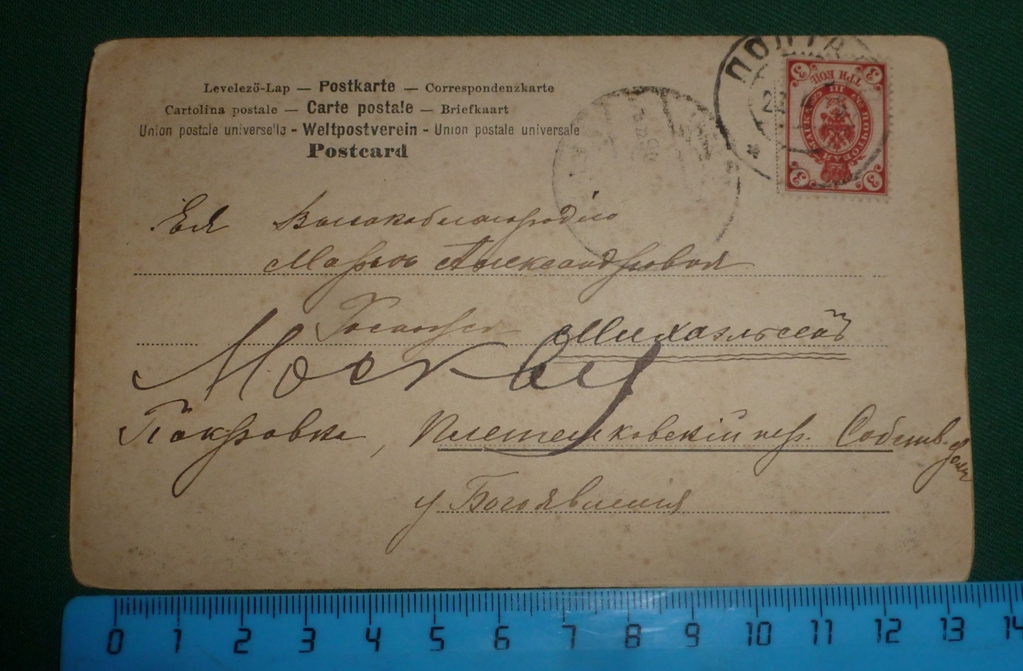 Levelező-Lap — Postkarte — Correspondenzkarte
Cartolina postale — Carte postale — Briefkaart
Union postale universella - Weltpostverein - Union postale universale
Postcard
ПОЛТА
3 ТРИ КОП 3
ПОЧТОВАЯ МАРКА
3 3
Ея Высокоблагородію
Марьѣ Александровнѣ
Михаэльсенъ
Москва
Покровка, Плетешковскій пер. Собств. домъ
у Богоявленія
0 1 2 3 4 5 6 7 8 9 10 11 12 13 14